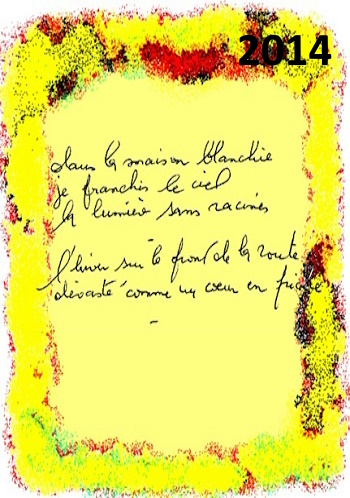 2014
dans la maison blanchie
je franchis le ciel
la lumière sans racines
l'hiver sur le front de la route
dévasté comme un cœur en friche